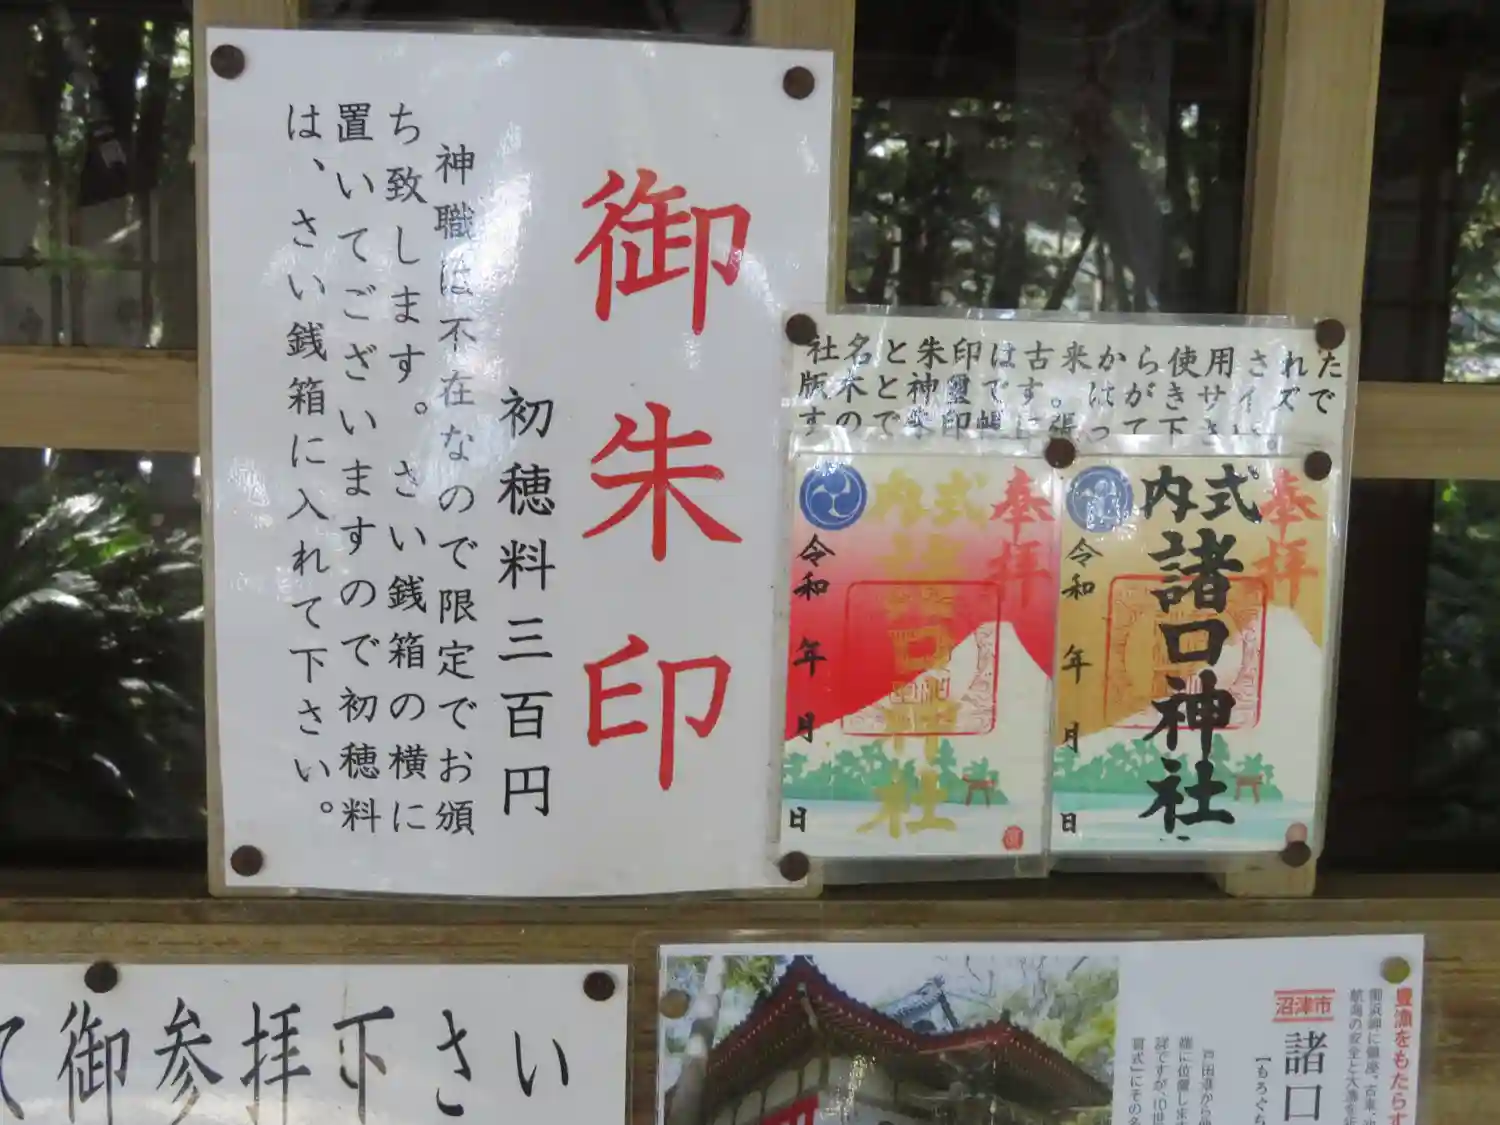 御朱印
初穂料三百円
神職は不在なので限定でお頒
ち致します。さい銭箱の横に
置いてございますので初穂料
は、さい銭箱に入れて下さい。
社名と朱印は古来から使用された
版木と神璽です。はがきサイズで
すので朱印帳に張って下さい。
奉拝
式内
諸口神社
令和 年 月 日
奉拝
式内
諸口神社
令和 年 月 日
て御参拝下さい
豊漁をもたらす
沼津市
諸口
【もろぐち